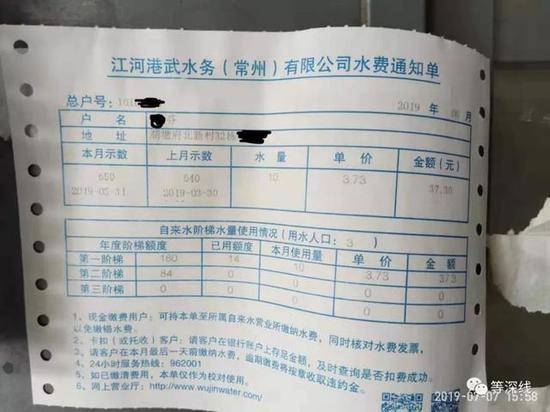 江河港武水务（常州）有限公司水费通知单
总户号: 101
2019 年 06 月
户 名 芬
地 址
本月示数 上月示数 水 量 单 价 金额（元）
650 640 10 3.73 37.30
2019-05-31 2019-03-30
自来水阶梯水量使用情况（用水人口: 3 ）
年度阶梯额度 已用额度 本月使用量 单 价 金 额
第一阶梯 180 14 10 3.73 373
第二阶梯 84 0 0 0 0
第三阶梯 0 0 0 0 0
1、现金缴费用户：可持本单至所属自来水营业所缴纳水费，同时核对水费发票，
以免缴错水费。
2、卡扣（或托收）客户：请客户在银行账户上存足金额，及时查询是否扣费成功。
3、请客户在本月最后一天前缴纳水费，逾期缴费务按章收取违约金。
4、24小时服务热线：962001
5、如已缴清费用，本单仅作为校对使用。
6、网上营业厅：http://www.wujinwater.com/
等深线
2019-07-07 15:58